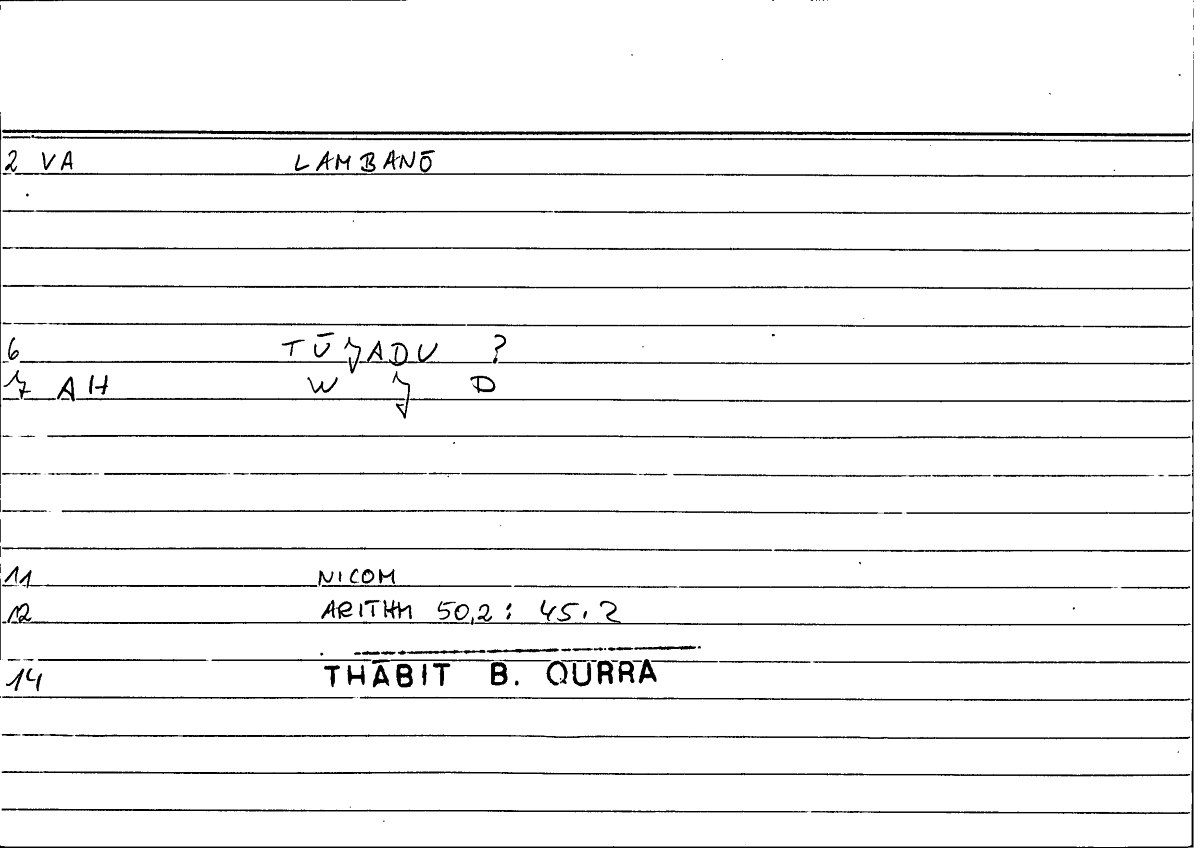 2 VA LAMBANŌ
6 TŪJADU ?
7 AH W J D
11 NICOM
12 ARITHM 50,2 : 45,2
14 THĀBIT B. QURRA